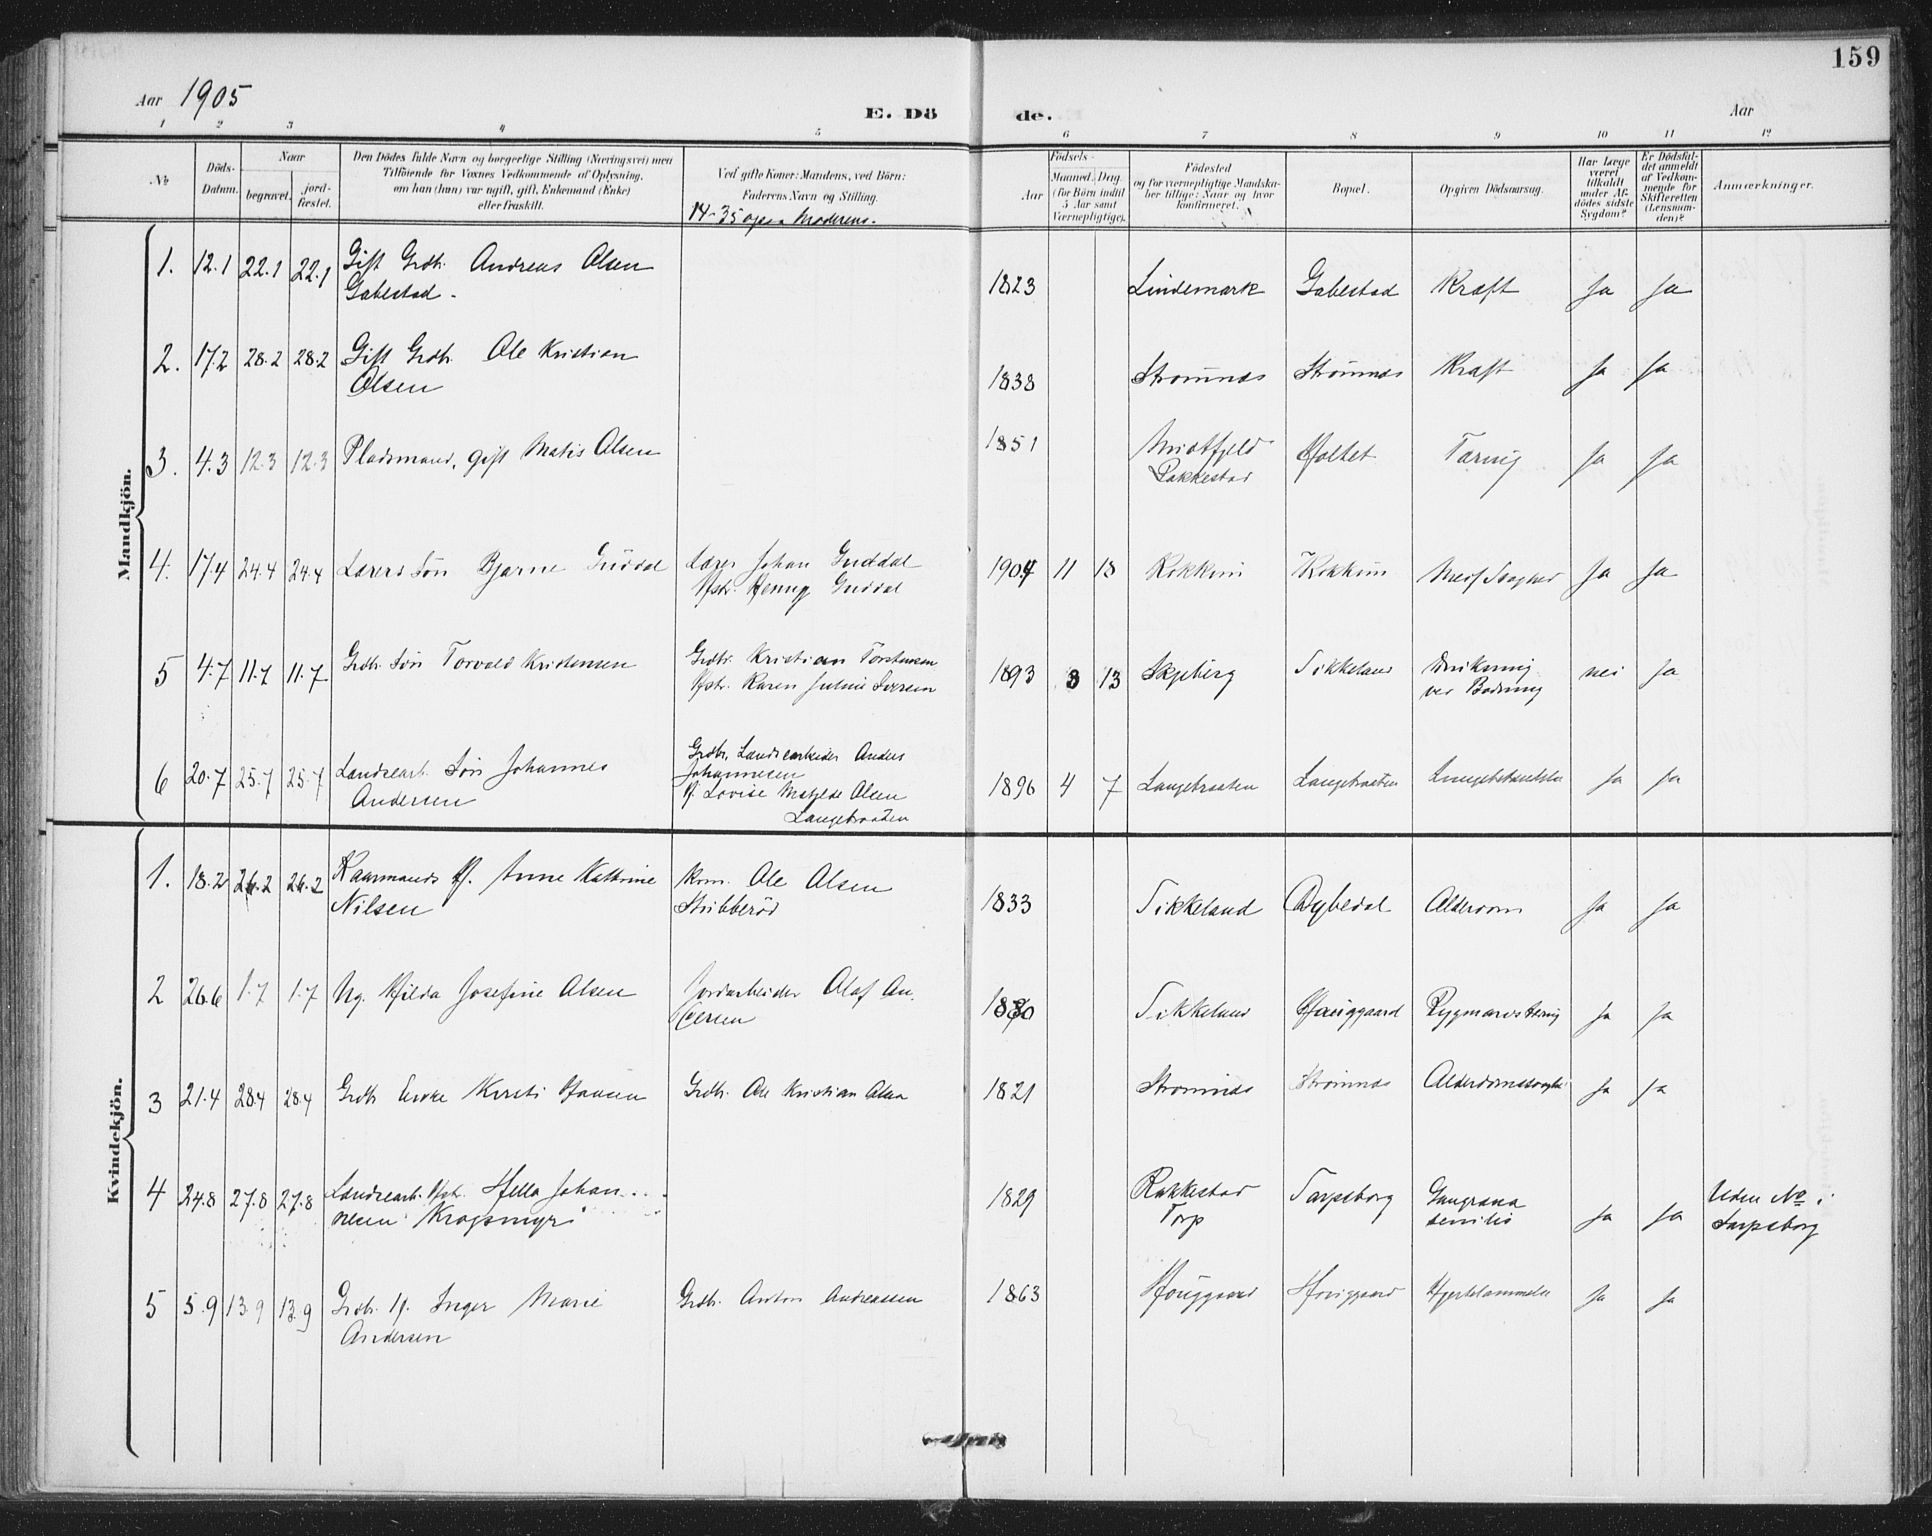 159
Aar 1905
E. Dö
de.
Aar
1 2 3 4 5 6 7 8 9 10 11 12
No
Döds-
Datum.
Naar
begravet.
jord-
fæstet.
Den Dödes fulde Navn og borgerlige Stilling (Næringsvei) med
Tilföiende for Voxnes Vedkommende af Oplysning,
om han (hun) var ugift, gift, Enkemand (Enke)
eller fraskilt.
Ved gifte Koner: Mandens, ved Börn:
Faderens Navn og Stilling.
14-35 og Moderens.
Födsels-
Aar
Maaned. Dag.
(for Börn indtil
5 Aar samt
Værnepligtige).
Födested
og for værnepligtige Mandska-
ber tillige: Naar og hvor
konfirmeret.
Bopæl.
Opgiven Dödsaarsag.
Har Læge
været
tilkaldt
under Af-
dödes sidste
Sygdom?
Er Dödsfal-
det anmeldt
af Vedkom-
mende for
Skifteretten
(Lensman-
den)?
Anmærkninger.
Mandkjön.
1. 12.1 22.1 22.1 Gift Grdbr. Andreas Olsen
Gabestad. 1823 Lindemark Gabestad Kræft Ja Ja
2. 17.2 28.2 28.2 Gift Grdbr. Ole Kristian
Olsen 1838 Strömnes Strömnes Kræft Ja Ja
3. 4.3 12.3 12.3 Pladsmand, gift Matis Olsen 1851
Rakkestad Holtet Tæring Ja Ja
4. 17.4 24.4 24.4 Lærers Sön Bjarne Guddal Lærer Johan Guddal
Hstr. Henny Guddal 1904 11 18 Kokkim Kokkim Ja Ja
5 4.7 11.7 11.7 Grdbr. Sön Torvald Kristensen Grdbr. Kristian Torstensen
Hstr. Karen Juline Iversen 1893 3 13 Skjeberg Tikkeland Drukning
ved Badning nei Ja
6 20.7 25.7 25.7 Landsearb. Sön Johannes
Andersen Grdbr. Landsearbeider Anders
Johannesen
H. Lovise Matylde Olsen
Langebraaten 1896 4 7 Langebraaten Langebraaten Ja Ja
Kvindekjön.
1. 18.2 26.2 26.2 Kaarmands H. Anne Kathrine
Nilsen Krm. Ole Olsen
Stubberöd 1833 Tikkeland Dybedal Alderdom Ja Ja
2 26.6 1.7 1.7 Ug. Hilda Josefine Olsen Jordarbeider Olaf An-
dersen 1880 Tikkeland Houggaard Rygmarvstæring Ja Ja
3 21.4 28.4 28.4 Grdbr. Enke Kirsti Hansen Grdbr. Ole Kristian Olsen 1821 Strömnes Strömnes Ja Ja
4 24.8 27.8 27.8 Landsearb. Hstr. Hella Johan-
nesen Krogsmyr 1829 Rakkestad
Torp Sarpsborg Gangræna
senilis Ja Ja Uden No i
Sarpsborg
5 5.9 13.9 13.9 Grdbr. H. Inger Marie
Andersen Grdbr. Anton Andreassen 1863 Houggaard Houggaard Hjertelammelse Ja Ja